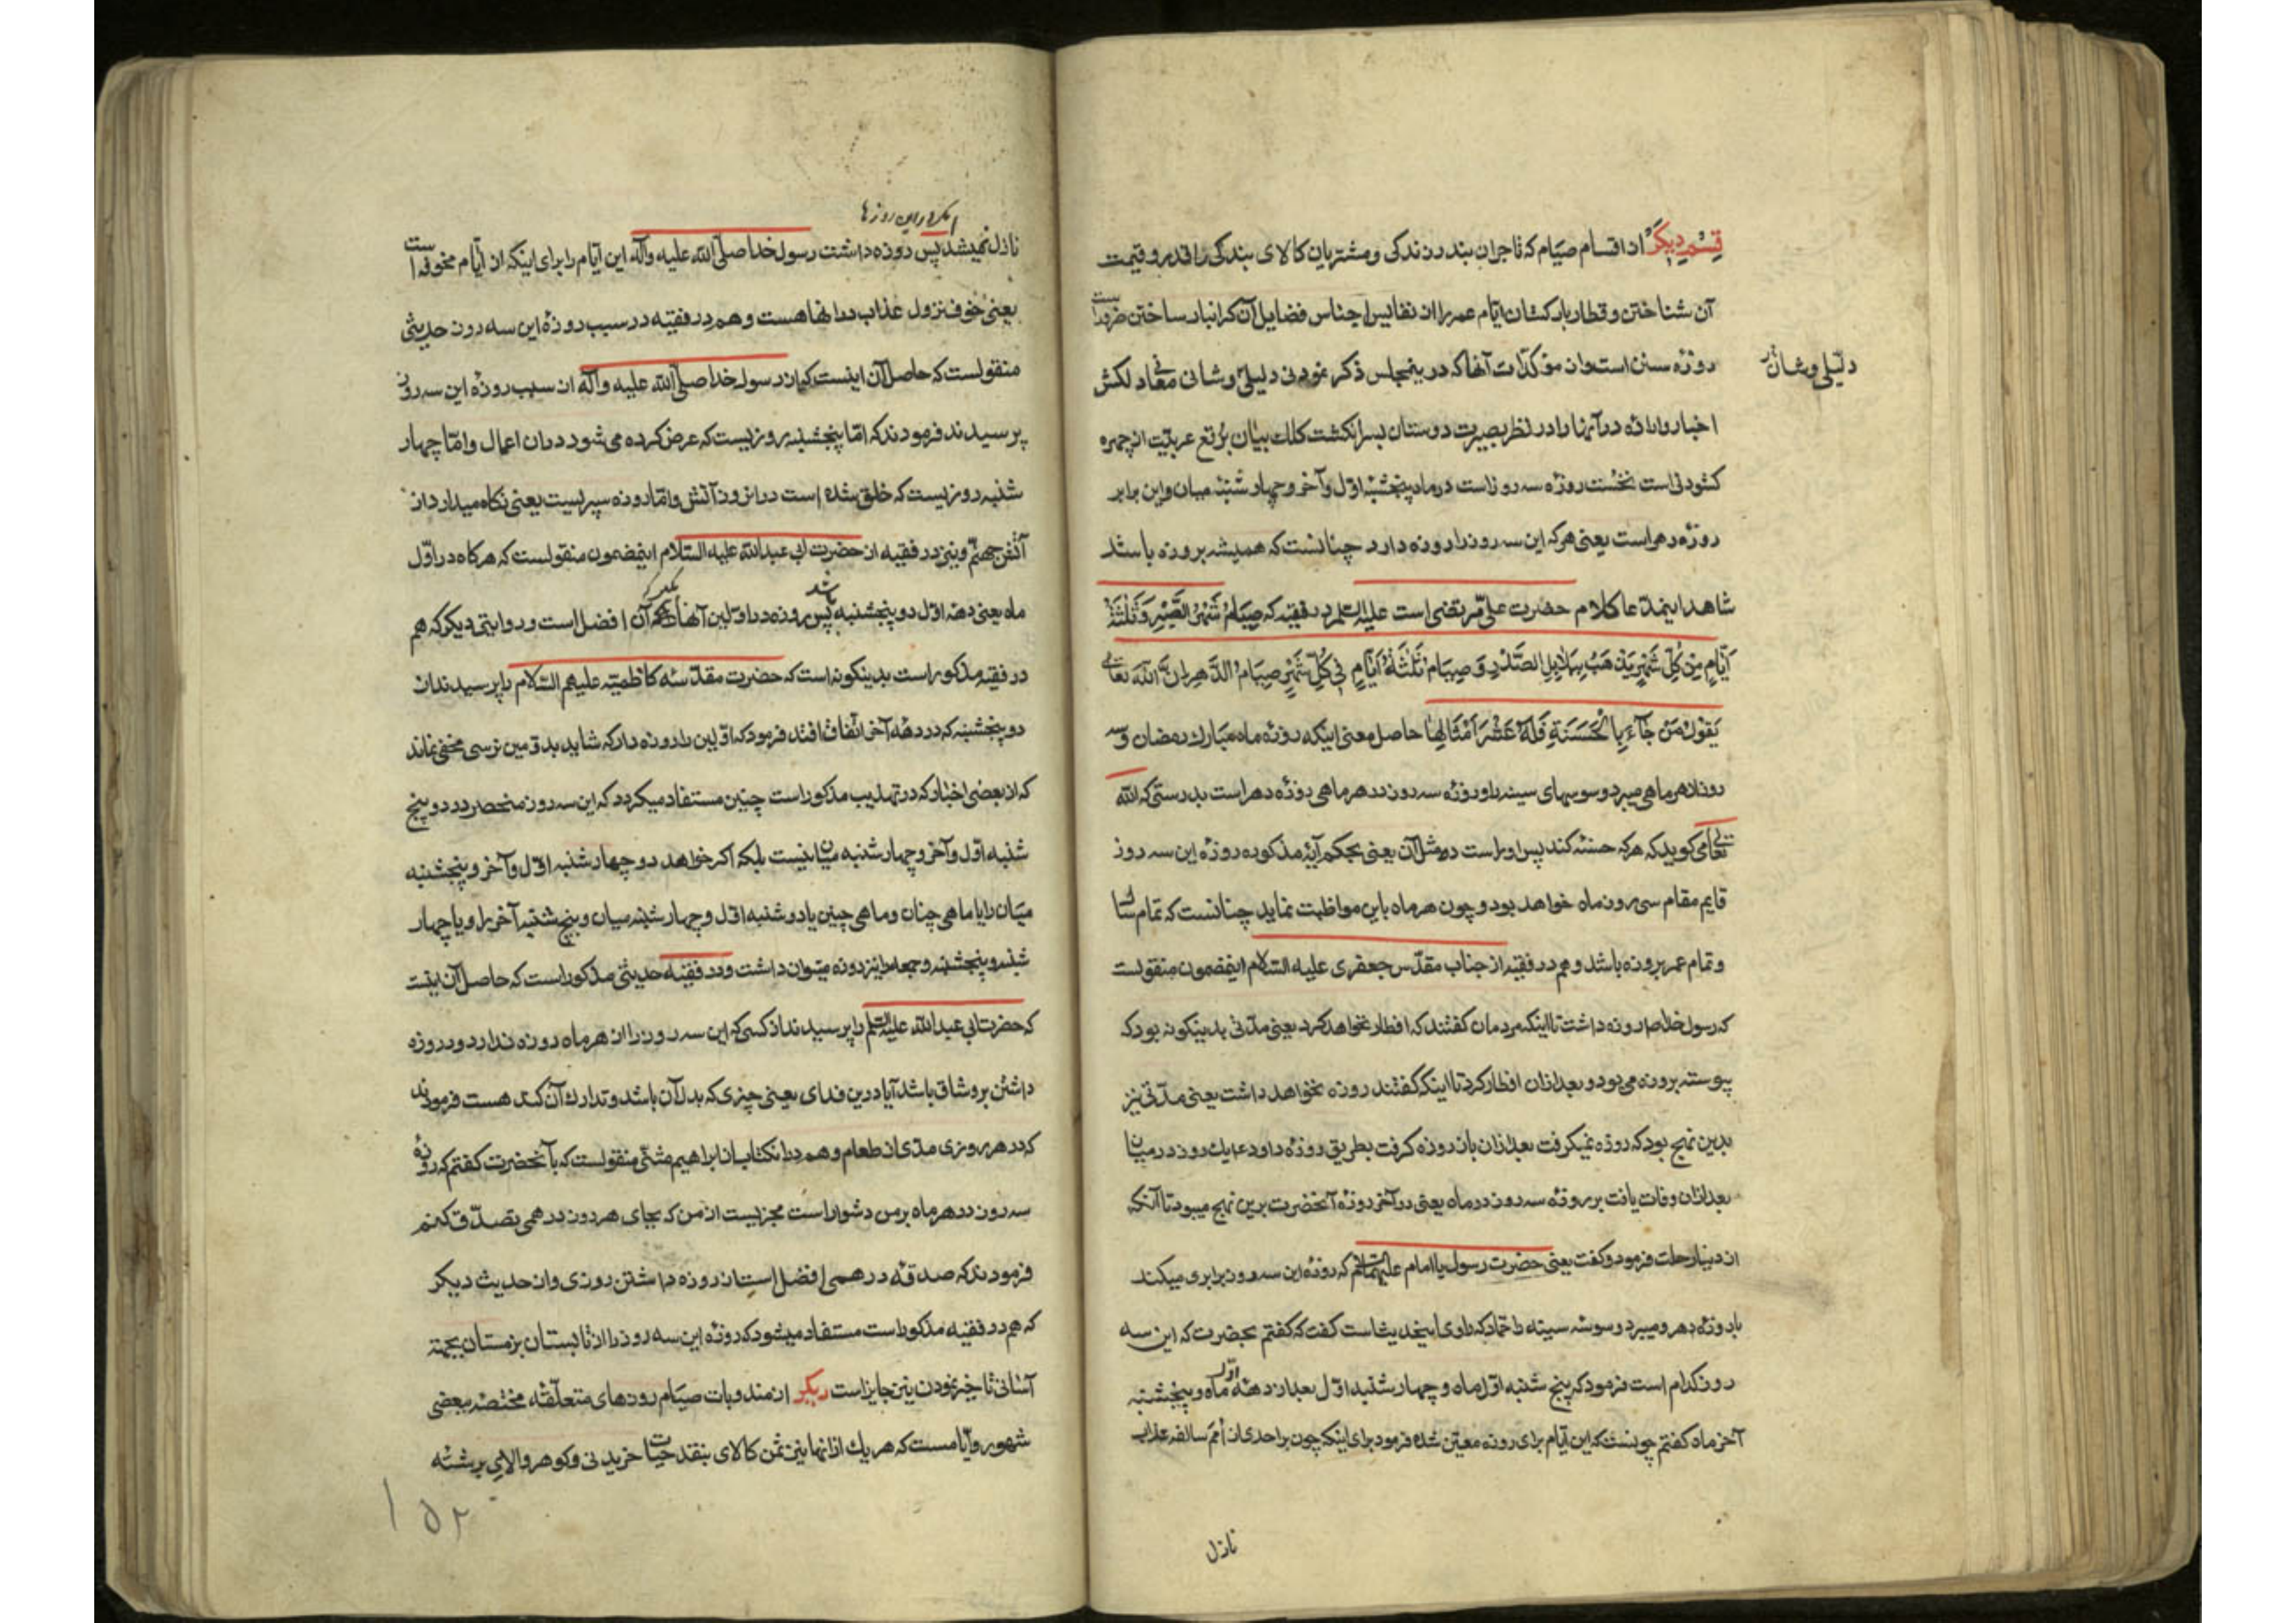 قِسْمِ دِیکَرْ از اقسام صیام که تاجران بندر زندکی و مشتریان کالای بندکی را قدر و قیمت
آن شناختن و قطار بارکشان ایام عمر را از نفایس اجناس فضایل آن کرانبار ساختن ضرور است
روزهٔ سنن است و از مؤکدات آنها که درینمجلس ذکر نمودنی دلیلی و شانی معاد لکش
دلیلی و شان
اخبار وارده در آنها را در نظر بصیرت دوستان بسرانکشت کلک بیان برقع عربیّت از چهره
کشودنی است نخست روزه سه روز است در ماه پنجشنبهٔ اوّل و آخر و چهار شنبهٔ میان و این برابر
روزهٔ دهر است یعنی هرکه این سه روز را روزه دارد چنانست که همیشه بروزه باشد
شاهد اینمدّعا کلام حضرت علی مرتضی است علیه السلم در فقیه که صِیَامُ شَهْرُ الصَّبْرِ وَ ثَلٰثَةُ
اَیّامٍ مِنْ کُلِّ شَهْرٍ یَذْهَبُ بِبَلَابِلِ الصَّدْرِ وَ صِیَامُ ثَلٰثَةُ اَیّامٍ فِی کُلِّ شَهْرٍ صِیَامُ الدَّهْرِ اِنَّ اللّٰهَ تعالی
یَقُولُ مَنْ جَآءَ بِالْحَسَنَةِ فَلَهُ عَشْرُ اَمْثَالِهَا حاصل معنی اینکه روزهٔ ماه مبارک رمضان و سه
روز از هر ماهی میبرد وسوسهای سینه را و روزهٔ سه روز در هر ماهی روزهٔ دهر است بدرستی که الله
تعالی میکوید که هرکه حسنه کند پس او راست ده مثل آن یعنی بحکم آیهٔ مذکوره روزهٔ این سه روز
قایم مقام سی روز ماه خواهد بود و چون هر ماه باین مواظبت نماید چنانست که تمام سال
و تمام عمر بروزه باشد و هم در فقیه از جناب مقدّس جعفری علیه السلام اینمضمون منقولست
که رسول خدا ص روزه داشت تا اینکه مردمان کفتند که افطار نخواهد کرد یعنی مدّتی بدینکونه بود که
پیوسته بروزه می بود و بعد ازان افطار کرد تا اینکه کفتند روزه نخواهد داشت یعنی مدّتی نیز
بدین نهج بود که روزه نمیکرفت بعد ازان باز روزه کرفت بطریق روزهٔ داود ع یک روز در میان
بعد ازان وفات یافت بر روزهٔ سه روز در ماه یعنی در آخر روزهٔ آنحضرت برین نهج میبود تا آنکه
از دنیا رحلت فرمود و کفت یعنی حضرت رسول یا امام علیهما السلام که روزهٔ این سه روز برابری میکند
با روزهٔ دهر و میبرد وسوسهٔ سینه را حمّاد که راوی اینحدیث است کفت که کفتم بحضرت که این سه
روز کدام است فرمود که پنج شنبه اوّل ماه و چهار شنبه اوّل بعد از دههٔ اوّل ماه و پنجشنبه
آخر ماه کفتم چونست که این ایّام برای روزه معیّن شده فرمود برای اینکه چون بر احدی از اُمَم سالفه عذاب
نازل
اینکه در این روزها
نازل نمیشد پس روزه داشت رسول خدا صلّی الله علیه وآله این ایّام را برای اینکه از ایّام مخوفه است
یعنی خوف نزول عذاب در آنها هست و هم در فقیه در سبب روزهٔ این سه روز حدیثی
منقولست که حاصل آن اینست که از رسول خدا صلّی الله علیه وآله از سبب روزهٔ این سه روز
پرسیدند فرمودند که امّا پنجشنبه روزیست که عرض کرده می شود در ان اعمال و امّا چهار
شنبه روزیست که خلق شده است در انروز آتش و امّا روزه سپریست یعنی نکاه میدارد از
آتش جهنّم و نیز در فقیه از حضرت ابی عبدالله علیه السلام اینمضمون منقولست که هرکاه در اوّل
ماه یعنی دهه اوّل دو پنجشنبه باشد پس روزه در اوّلین آنها آن افضل است و روایتی دیکر که هم
در فقیه مذکور است بدینکونه است که حضرت مقدّسهٔ کاظمیّه علیهم السّلام را پرسیدند از
دو پنجشنبه که در دههٔ آخر اتّفاق افتد فرمود که اوّلین را روزه دار که شاید بدوّمین نرسی مخفی نماند
که از بعضی اخبار که در تهذیب مذکور است چنین مستفاد میکردد که این سه روز منحصر در دو پنج
شنبه اوّل و آخر و چهار شنبه میان نیست بلکه اکر خواهد دو چهار شنبه اوّل و آخر و پنجشنبه
میان را یا ماهی چنان و ماهی چنین یا دو شنبه اوّل و چهار شنبه میان و پنج شنبه آخر را و یا چهار
شنبه و پنجشنبه و جمعه را نیز روزه میتوان داشت و در فقیه حدیثی مذکور است که حاصل آن اینست
که حضرت ابی عبدالله علیه السلم را پرسیدند از کسی که این سه روز را از هر ماه روزه ندارد و روزه
داشتن بر و شاق باشد آیا درین فدای یعنی چیزی که بدل آن باشد و تدارک آن کند هست فرمودند
که در هر روزی مدّی از طعام و هم در انکتاب از ابراهیم مثنّی منقولست که بآنحضرت کفتم که روزهٔ
سه روز در هر ماه بر من دشوار است مجزیست از من که بجای هر روز درهمی تصدّق کنم
فرمودند که صدقهٔ درهمی افضل است از روزه داشتن روزی و از حدیث دیکر
که هم در فقیه مذکور است مستفاد میشود که روزهٔ این سه روز را از تابستان بزمستان بجهة
آسانی تاخیر نمودن نیز جایز است دیکر از مندوبات صیام روزهای متعلّقه مختصّه ببعضی
شهور و ایّامست که هر یک از انها بنین ثمن کالای بنقد حیات خریدنی و کوهر والای برشته
۱۵۲